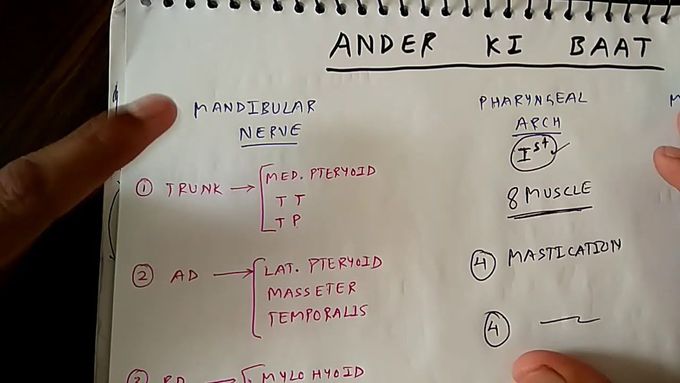 ANDER KI BAAT
MANDIBULAR
NERVE
① TRUNK → MED. PTERYOID
T T
T P
② AD → LAT. PTERYOID
MASSETER
TEMPORALIS
MYLO HYOID
PHARYNGEAL
ARCH
Ist
8 MUSCLE
④ MASTICATION
④
M